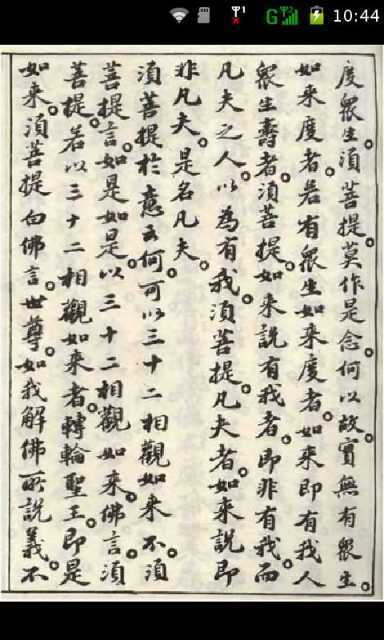 G 10:44
度眾生。須菩提。莫作是念。何以故。實無有眾生。
如來度者。若有眾生如來度者。如來即有我人
眾生壽者。須菩提。如來說有我者。即非有我。而
凡夫之人。以為有我。須菩提。凡夫者。如來說即
非凡夫。是名凡夫。
須菩提於意云何。可以三十二相觀如來不。須
菩提言。如是如是。以三十二相觀如來。佛言。須
菩提。若以三十二相觀如來者。轉輪聖王。即是
如來。須菩提白佛言。世尊。如我解佛所說義。不